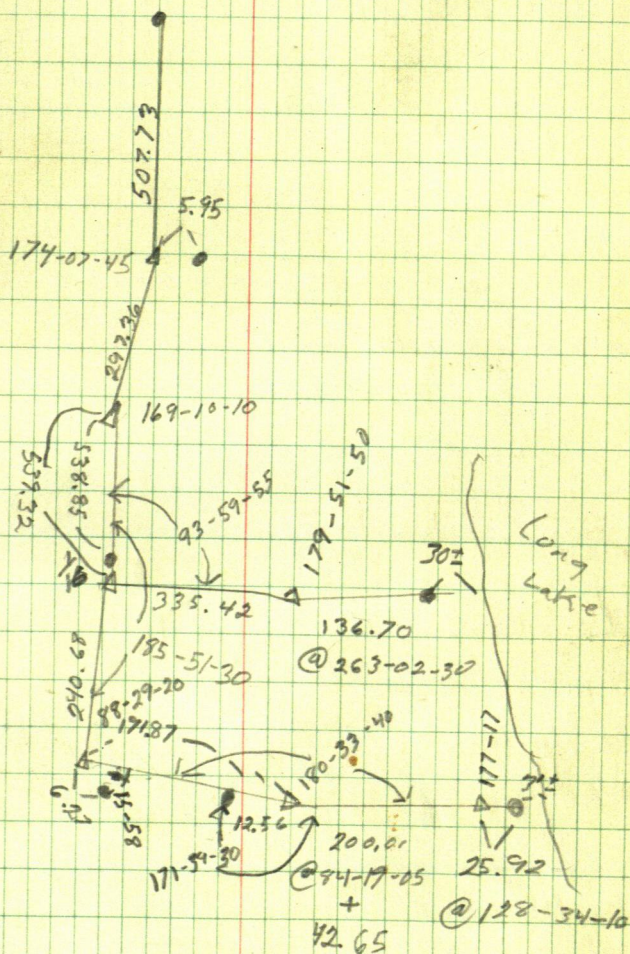 507.73
5.95
174-07-45
297.36
169-10-10
538.85
537.32
93-59-55
179-51-50
Long
Lake
30±
335.42
136.70
@ 263-02-30
185-51-30
240.68
88-29-20
171.87
180-33-40
177-17
12.56
171-54-30
200.01
@ 84-19-05
+
42.65
25.92
@ 128-34-10